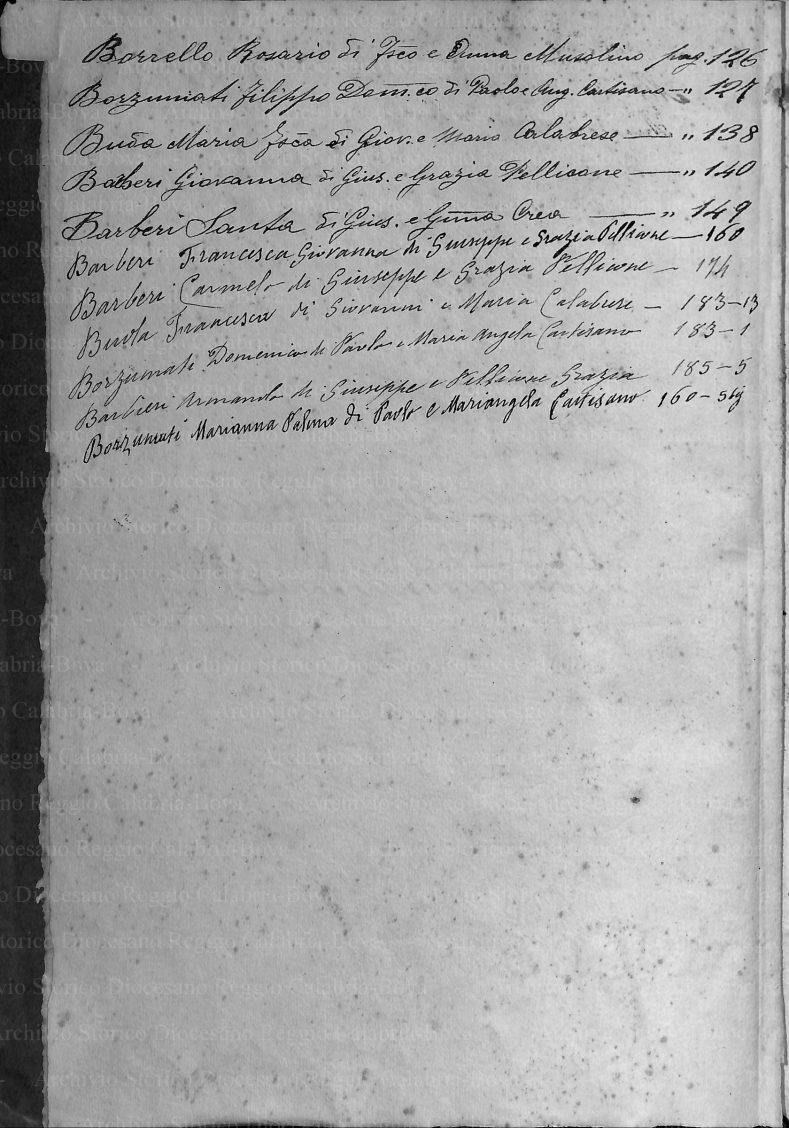 Borrello Rosario di Fsco e Anna Musolino pag. 126
Borzumati Filippo Dom.co di Paolo e Ang. Cartisano — „ 127
Buda Maria Fsca di Giov. e Maria Calabrese — „ 138
Barberi Giovanna di Gius. e Grazia Pellicone — „ 140
Barberi Santa di Gius. e Crea — „ 149
Barberi Francesca Giovanna di Giuseppe e Grazia Pellicone — 160
Barberi Carmelo di Giuseppe e Grazia Pellicone — 174
Buda Francesca di Giovanni e Maria Calabrese — 183-13
Borzumati Domenica di Paolo e Maria Angela Cartisano 183-1
Barbieri Armando di Giuseppe e Pellicone Grazia 185-5
Borzumati Marianna Palma di Paolo e Mariangela Cartisano. 160-
Archivio Storico Diocesano Reggio Calabria-Bova